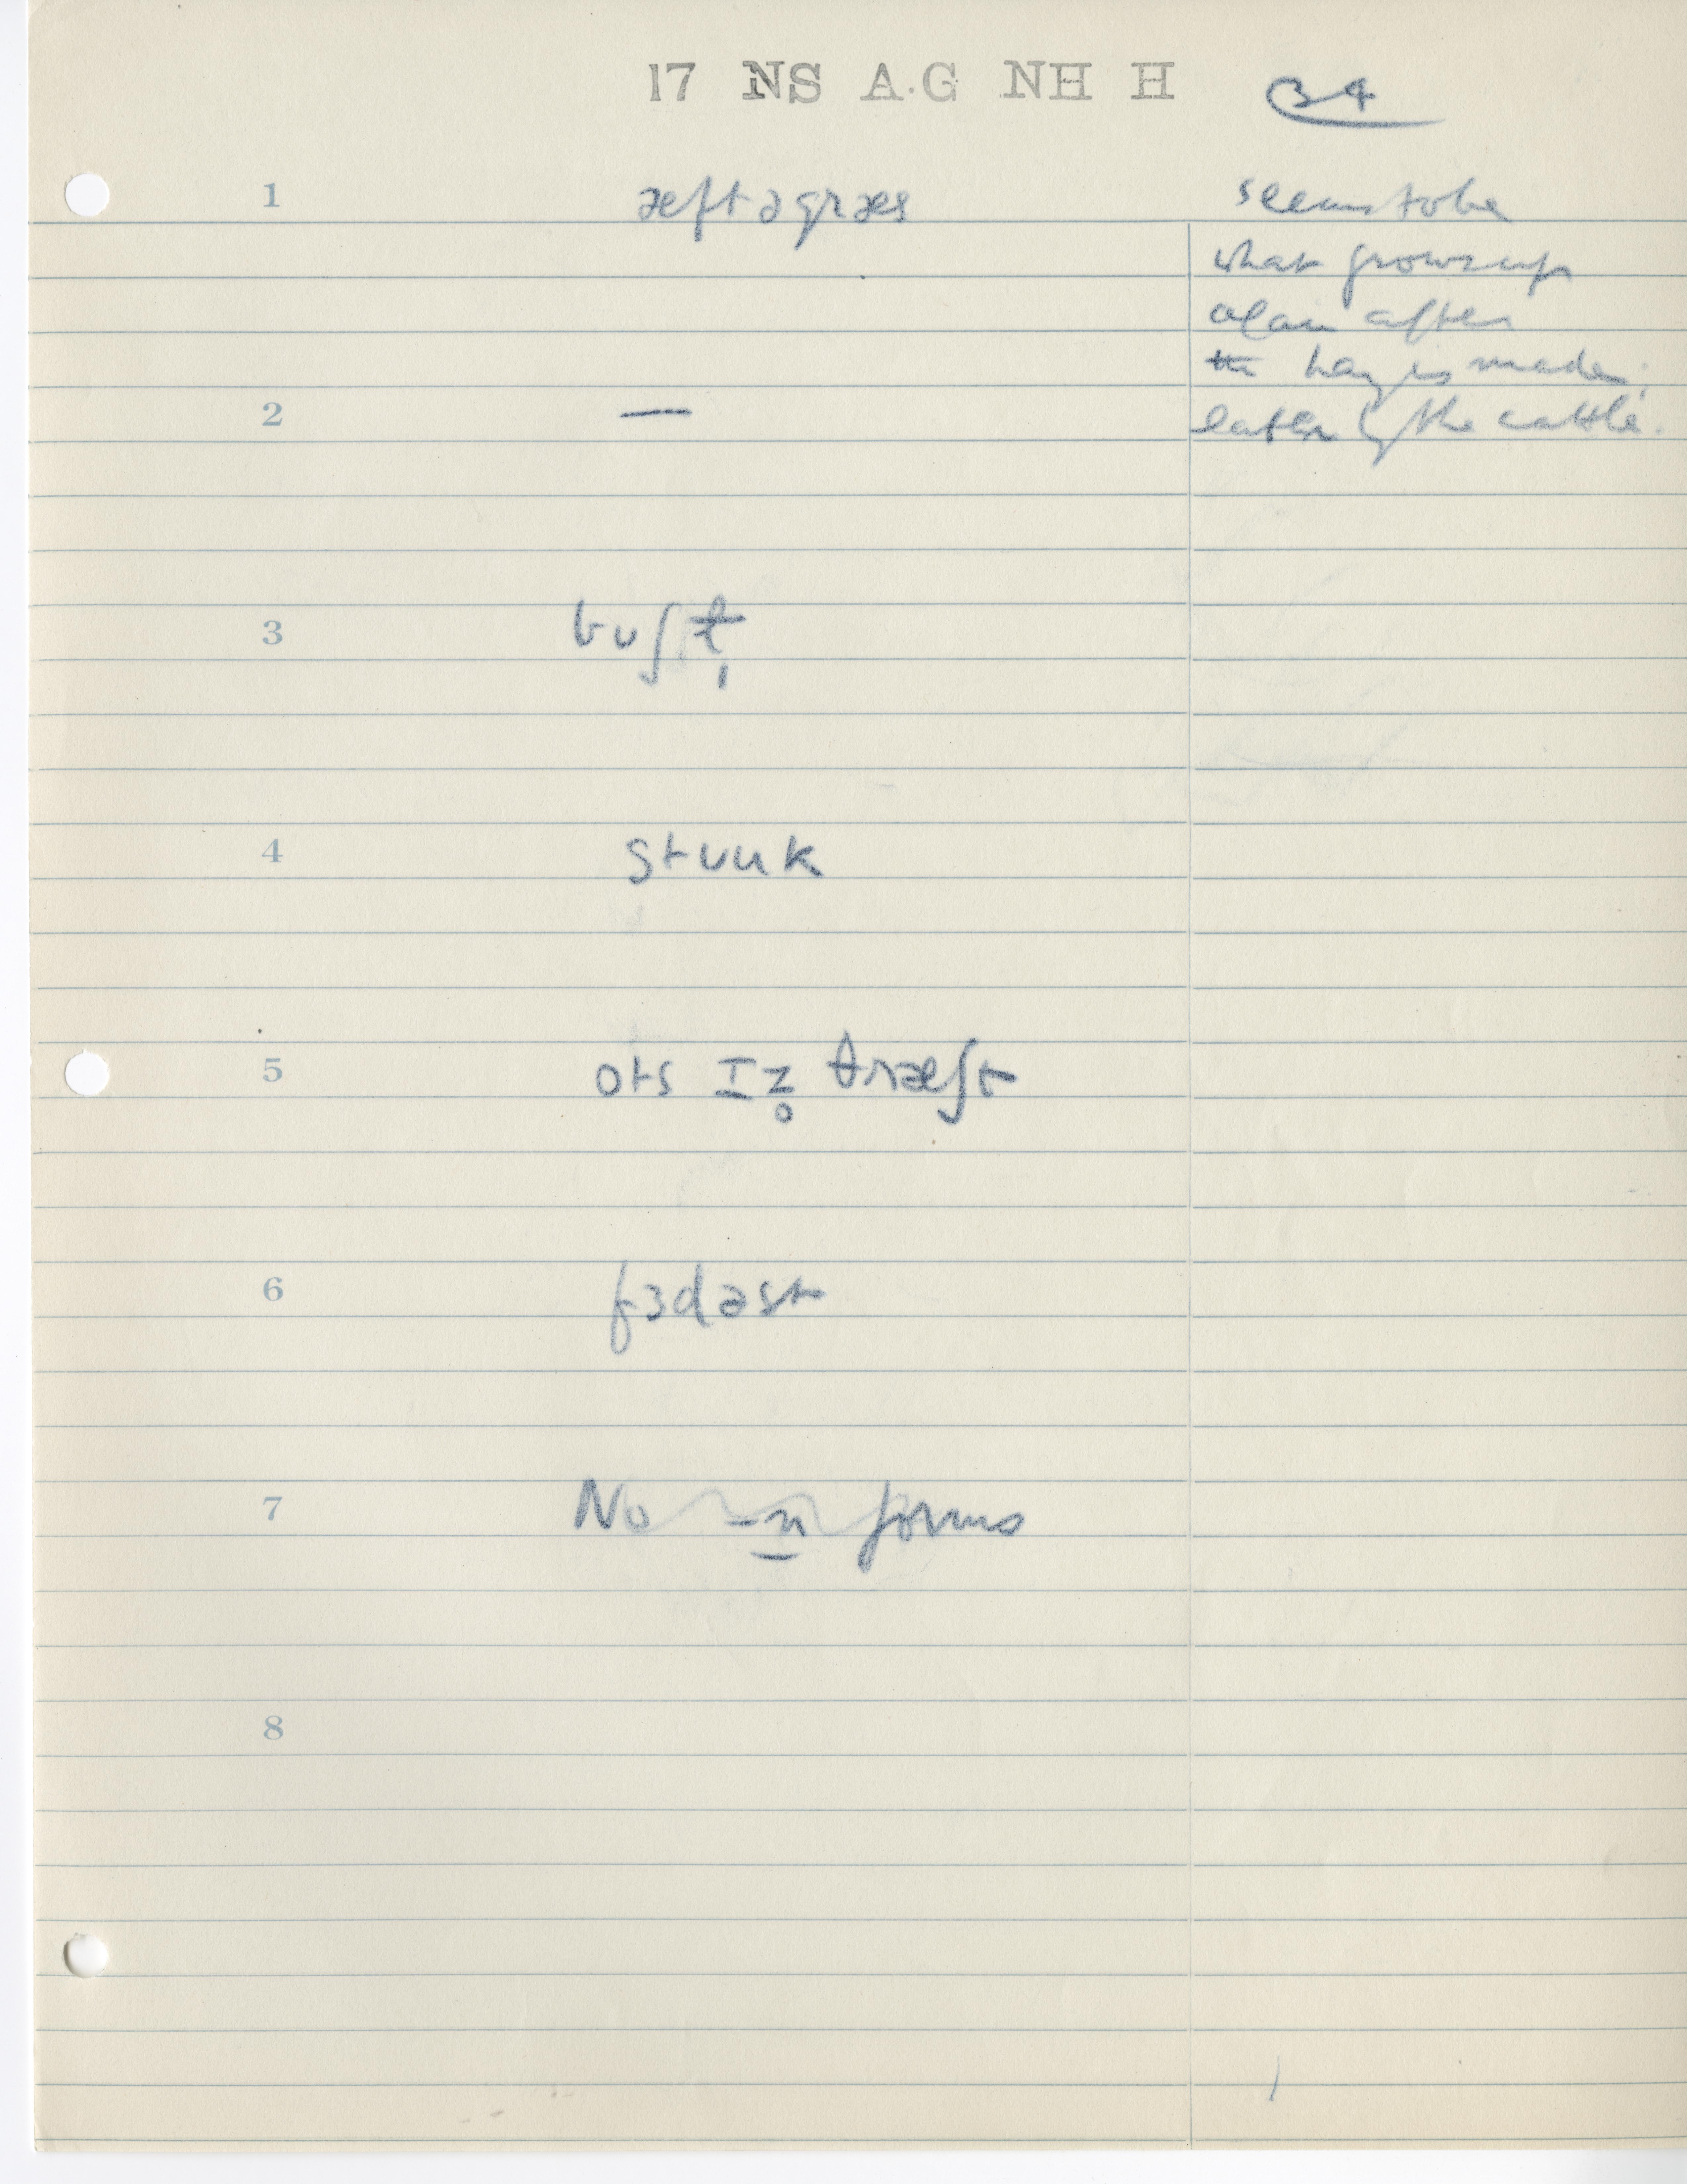 17 NS A.G NH H 34
1 æftəgræs seems to be
what grows up
again after
the hay is made;
2 — eaten by the cattle.
3 bʊʃt̩
4 stʊuk
5 ots ɪz̥ θræʃt
6 fɜdəst
7 No -n forms
8